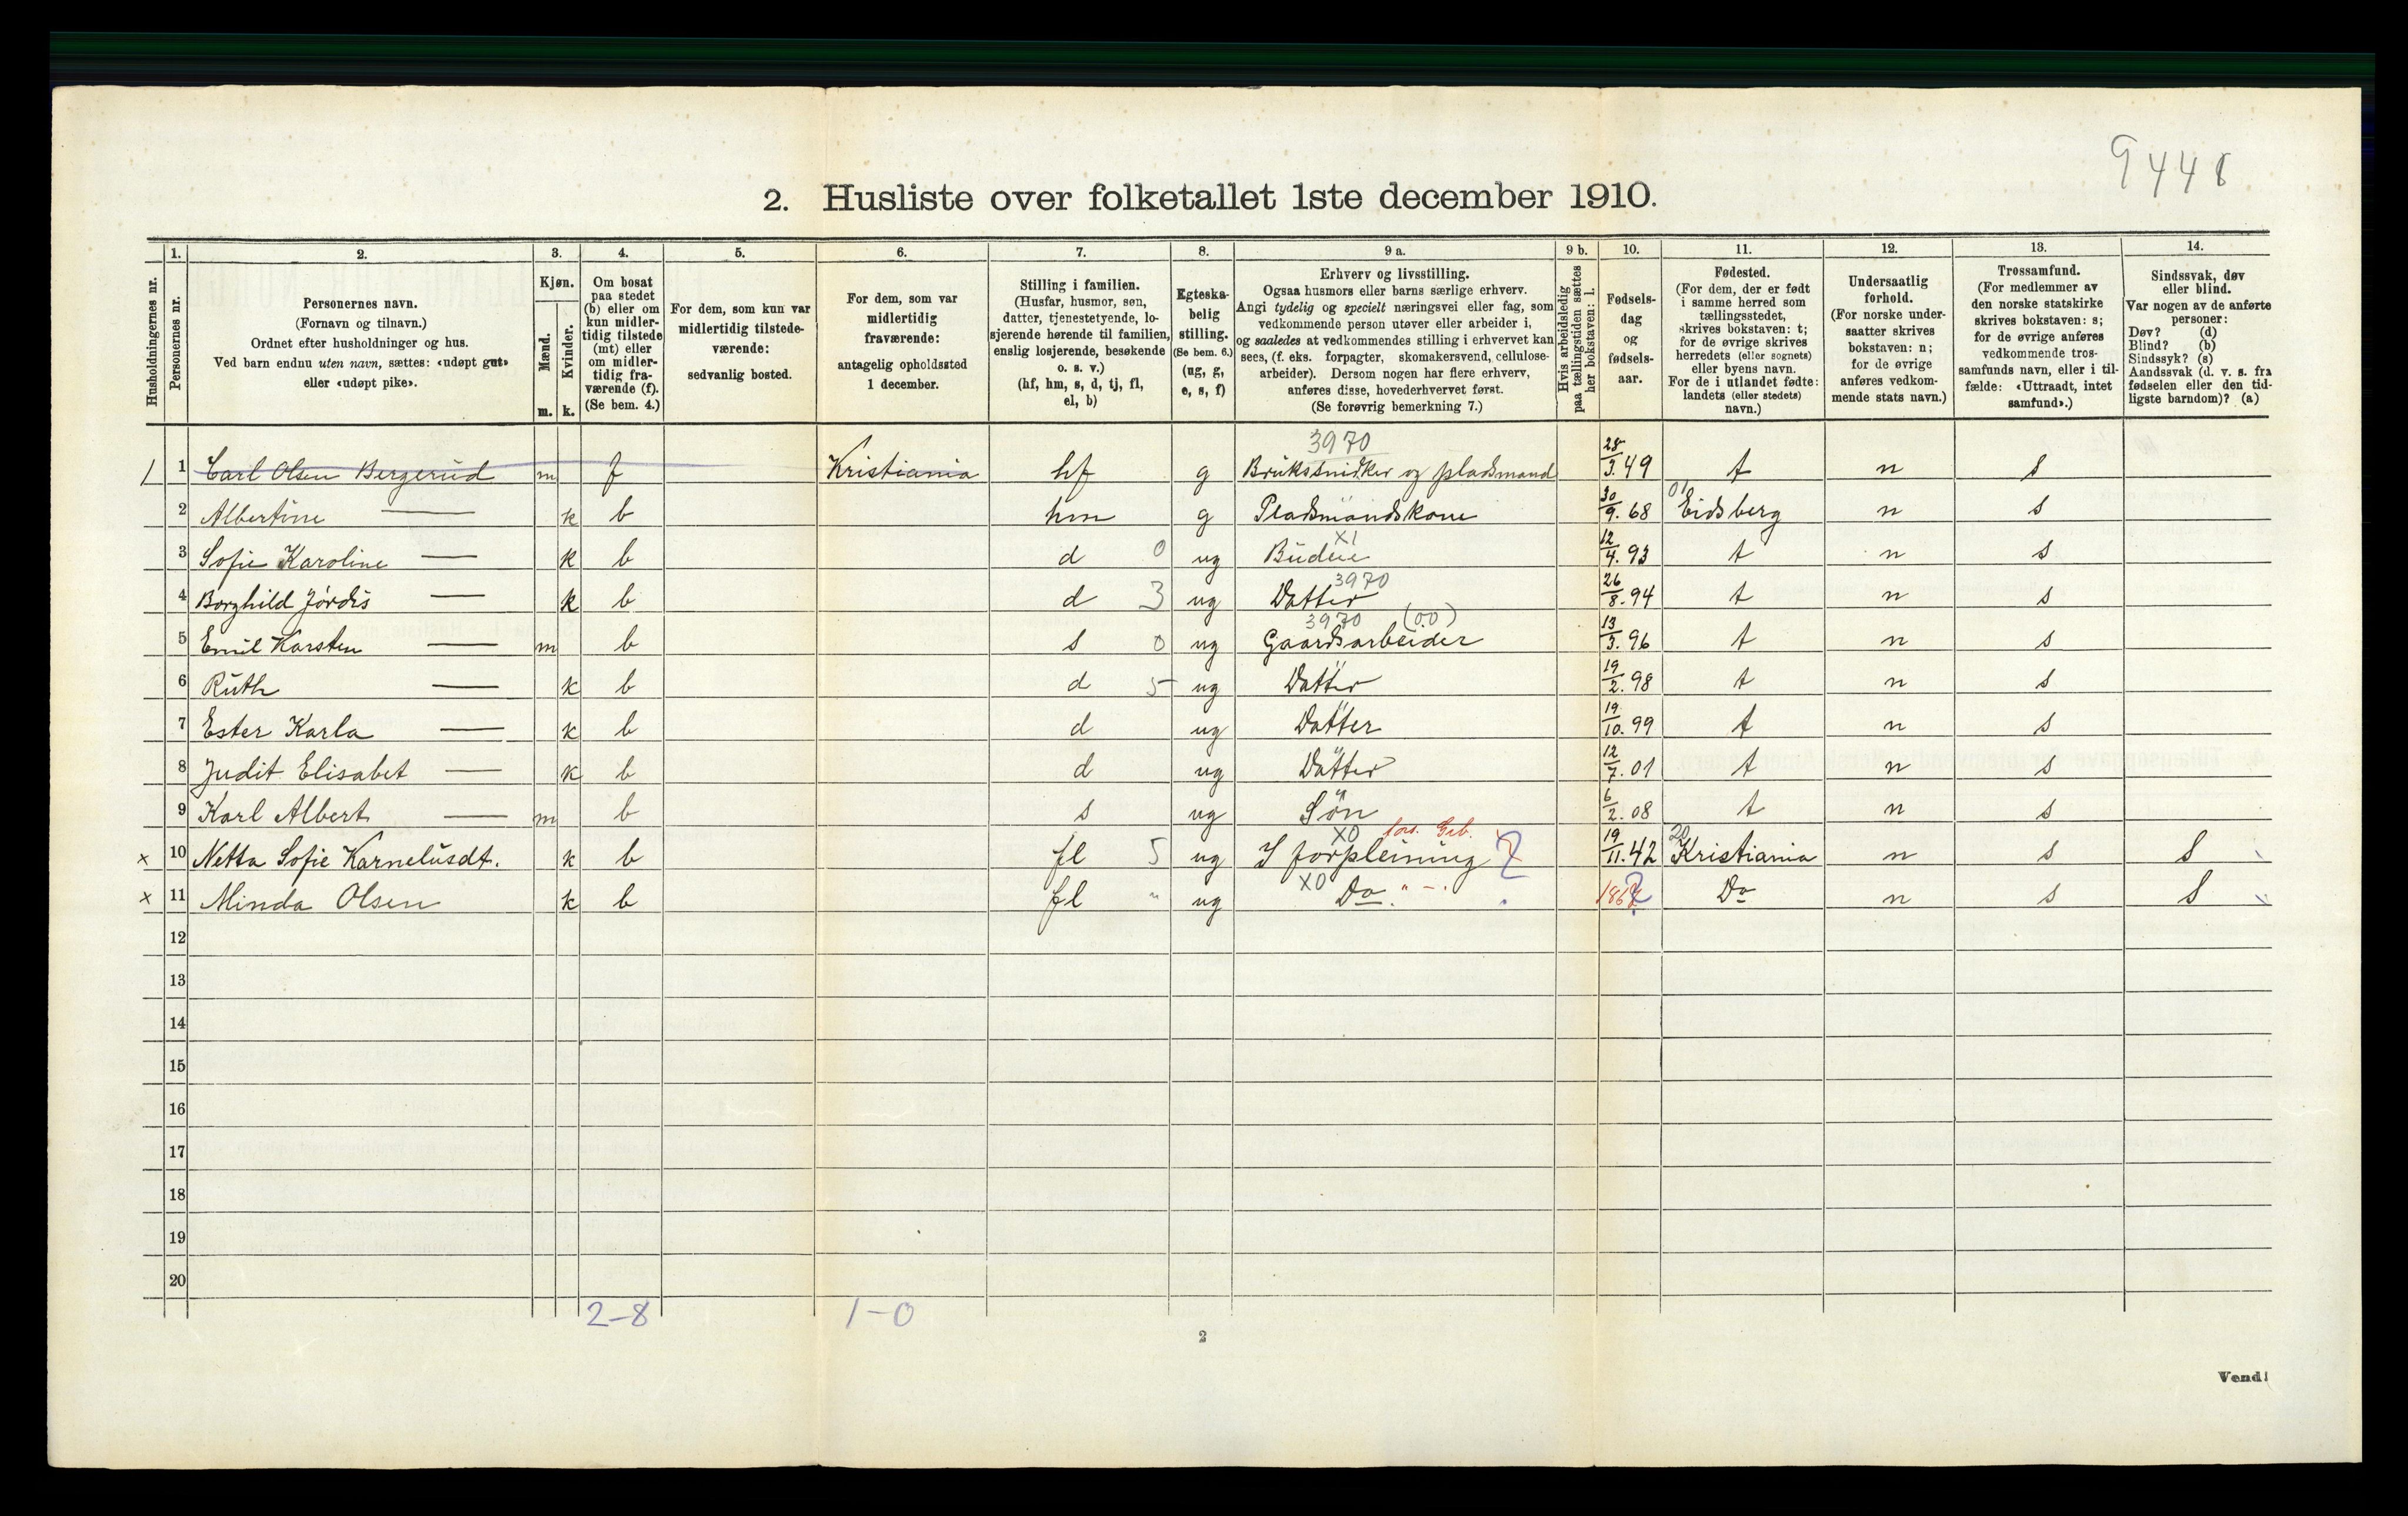 9448
2. Husliste over folketallet 1ste december 1910.
Husholdningernes nr.
1. Personernes nr.
2. Personernes navn. (Fornavn og tilnavn.) Ordnet efter husholdninger og hus. Ved barn endnu uten navn, sættes: «udøpt gut» eller «udøpt pike».
3. Kjøn. Mænd. m. Kvinder. k.
4. Om bosat paa stedet (b) eller om kun midlertidig tilstede (mt) eller om midlertidig fraværende (f). (Se bem. 4.)
5. For dem, som kun var midlertidig tilstedeværende: sedvanlig bosted.
6. For dem, som var midlertidig fraværende: antagelig opholdssted 1 december.
7. Stilling i familien. (Husfar, husmor, søn, datter, tjenestetyende, losjerende hørende til familien, enslig losjerende, besøkende o. s. v.) (hf, hm, s, d, tj, fl, el, b)
8. Egteskabelig stilling. (Se bem. 6.) (ug, g, e, s, f)
9 a. Erhverv og livsstilling. Ogsaa husmors eller barns særlige erhverv. Angi tydelig og specielt næringsvei eller fag, som vedkommende person utøver eller arbeider i, og saaledes at vedkommendes stilling i erhvervet kan sees, (f. eks. forpagter, skomakersvend, cellulosearbeider). Dersom nogen har flere erhverv, anføres disse, hovederhvervet først. (Se forøvrig bemerkning 7.)
9 b. Hvis arbeidsledig paa tællingstiden sættes her bokstaven: l.
10. Fødselsdag og fødselsaar.
11. Fødested. (For dem, der er født i samme herred som tællingsstedet, skrives bokstaven: t; for de øvrige skrives herredets (eller sognets) eller byens navn. For de i utlandet fødte: landets (eller stedets) navn.)
12. Undersaatlig forhold. (For norske undersaatter skrives bokstaven: n; for de øvrige anføres vedkommende stats navn.)
13. Trossamfund. (For medlemmer av den norske statskirke skrives bokstaven: s; for de øvrige anføres vedkommende trossamfunds navn, eller i tilfælde: «Uttraadt, intet samfund».)
14. Sindssvak, døv eller blind. Var nogen av de anførte personer: Døv? (d) Blind? (b) Sindssyk? (s) Aandssvak (d. v. s. fra fødselen eller den tidligste barndom)? (a)
3970
1 1 Carl Olsen Bergerud m f Kristiania hf g Brukssnidker og pladsmand 28/3.49 t n s
01
2 Albertine — k b hm g Pladsmandskone 30/9.68 Eidsberg n s
X1
3 Sofie Karoline — k b d 0 ug Budeie 12/4.93 t n s
3970
4 Borghild Jørdis — k b d 3 ug Datter 26/8.94 t n s
3970 (00)
5 Emil Karsten — m b s 0 ug Gaardsarbeider 13/3.96 t n s
6 Ruth — k b d 5 ug Datter 19/2.98 t n s
7 Ester Karla — k b d ug Datter 19/10.99 t n s
8 Judit Elisabet — k b d ug Datter 12/7.01 t n s
9 Karl Albert — m b s ug Søn 6/2.08 t n s
X0 20
x 10 Netta Sofie Karneliusdt. k b fl 5 ug I forpleining ? 19/11.42 Kristiania n s S
X0
x 11 Minda Olsen k b fl " ug Do " – . ? Do n s S
12
13
14
15
16
17
18
19
20
2–8 1–0
2
Vend!